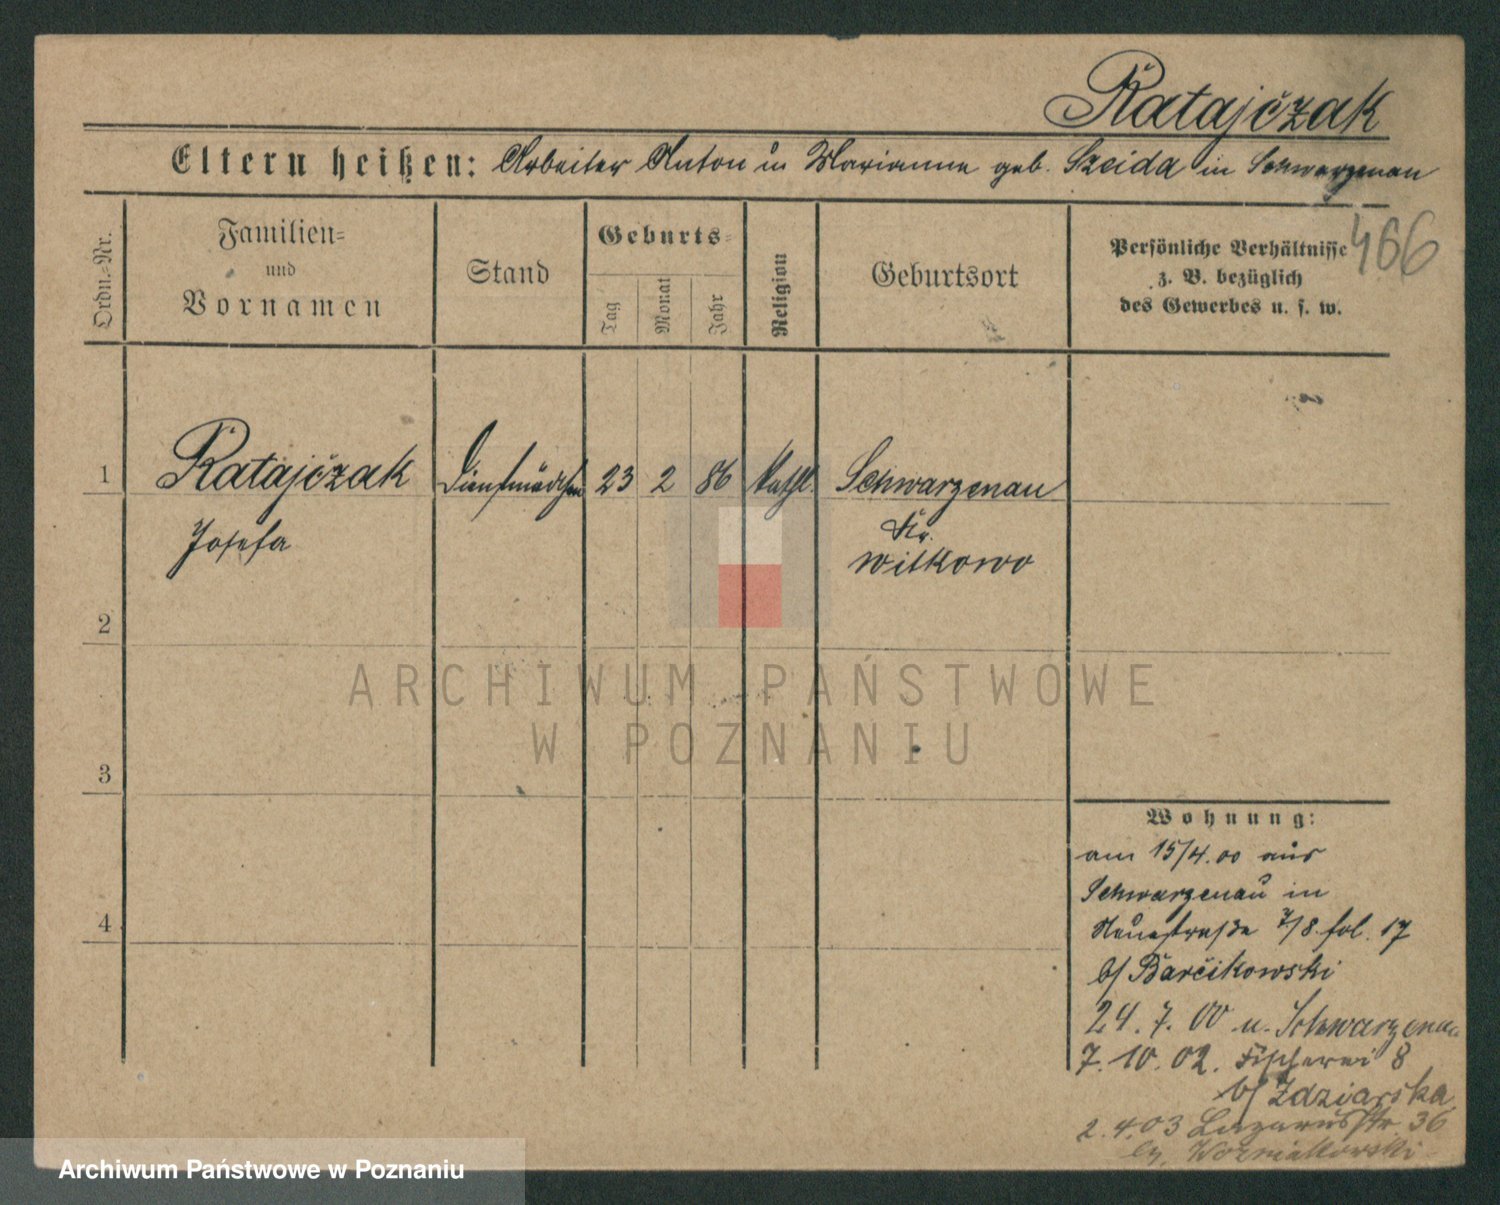 Ratajczak
Eltern heißen: Arbeiter Anton u Marianne geb. Szeida in Schwarzenau
466
Ordn.=Nr.
Familien=
und
Vornamen
Stand
Geburts=
Tag
Monat
Jahr
Religion
Geburtsort
Persönliche Verhältnisse
z. B. bezüglich
des Gewerbes u. s. w.
1 Ratajczak Dienstmädchen 23 2 86 kathl Schwarzenau
Josefa Kr.
Witkowo
2
3
4
ARCHIWUM PAŃSTWOWE
W POZNANIU
Wohnung:
am 15/4.00 aus
Schwarzenau in
Neuestraße 7/8 fol. 17
b/ Barcikowski
24.7.00 n. Schwarzenau
7.10.02. Fischerei 8
b/ Zdziarska
2.4.03 Lazarusstr. 36
Wozniakowski
Archiwum Państwowe w Poznaniu